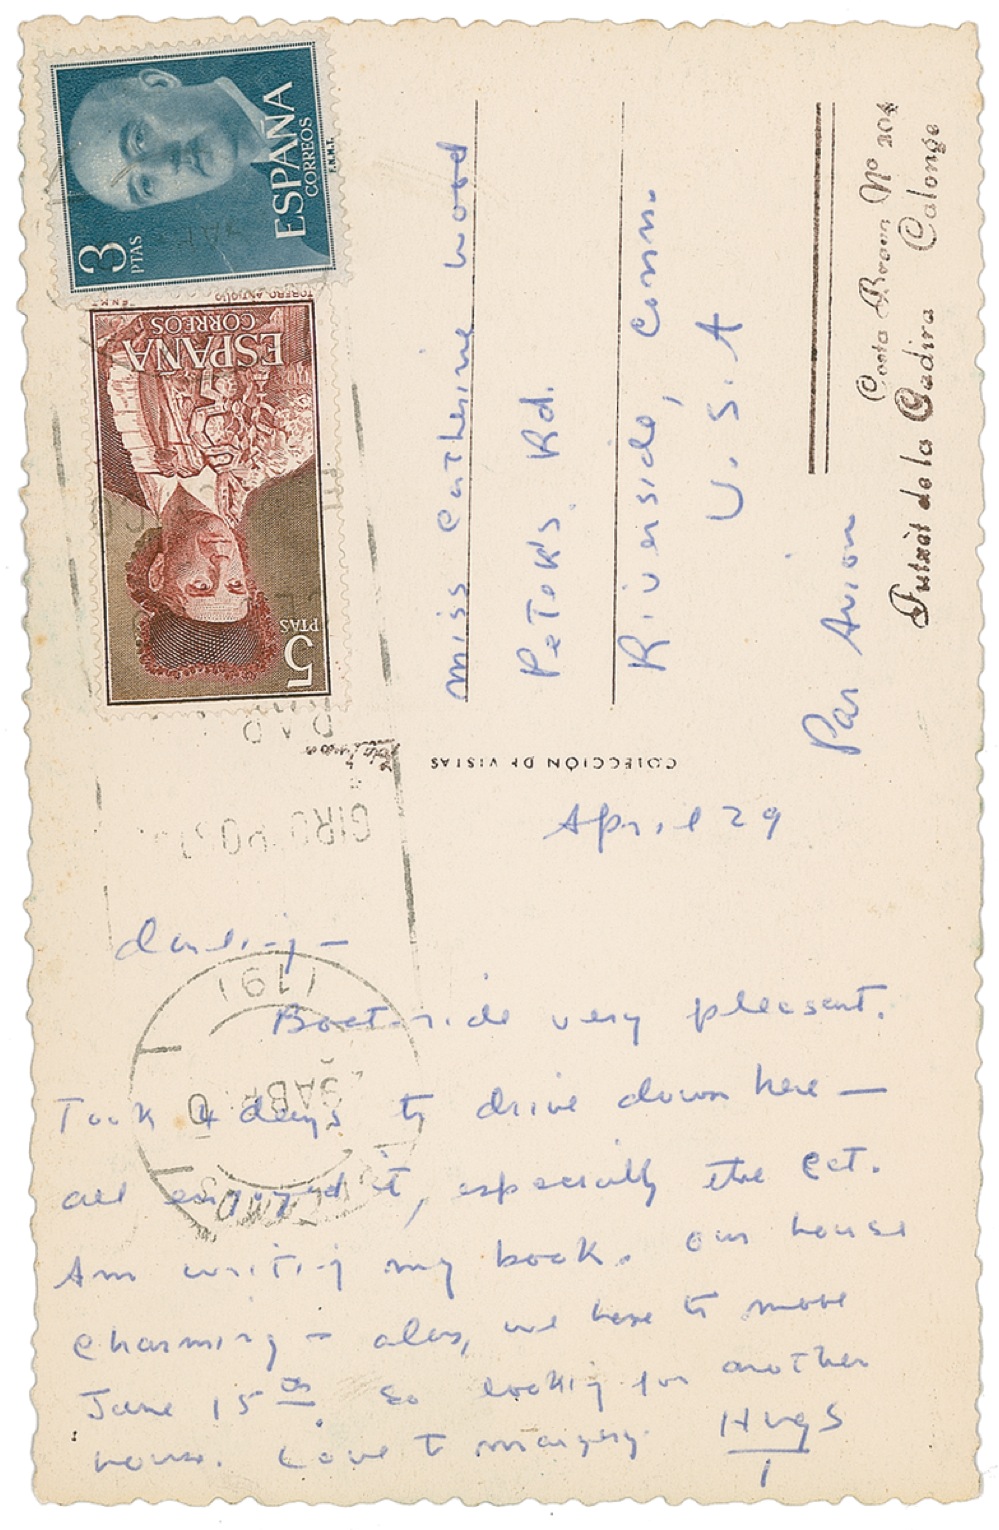 Costa Brava Nº 204
de la Cadira Calonge
3
PTAS
ESPAÑA
CORREOS
F.N.M.T.
TORERO ANTIGUO
5
PTAS
ESPAÑA
CORREOS
COLECCIÓN DE VISTAS
GIRO POS
29 ABR
miss Catherine Wood
Rd.
Riverside, Conn.
U.S.A
Par Avion
April 29
darling—
Boat-ride very pleasant.
Took 4 days to drive down here —
all enjoyed it, especially the cat.
Am writing my book. Our house
charming — alas, we have to move
June 15th. So looking for another
house. Love to margery. Hugs